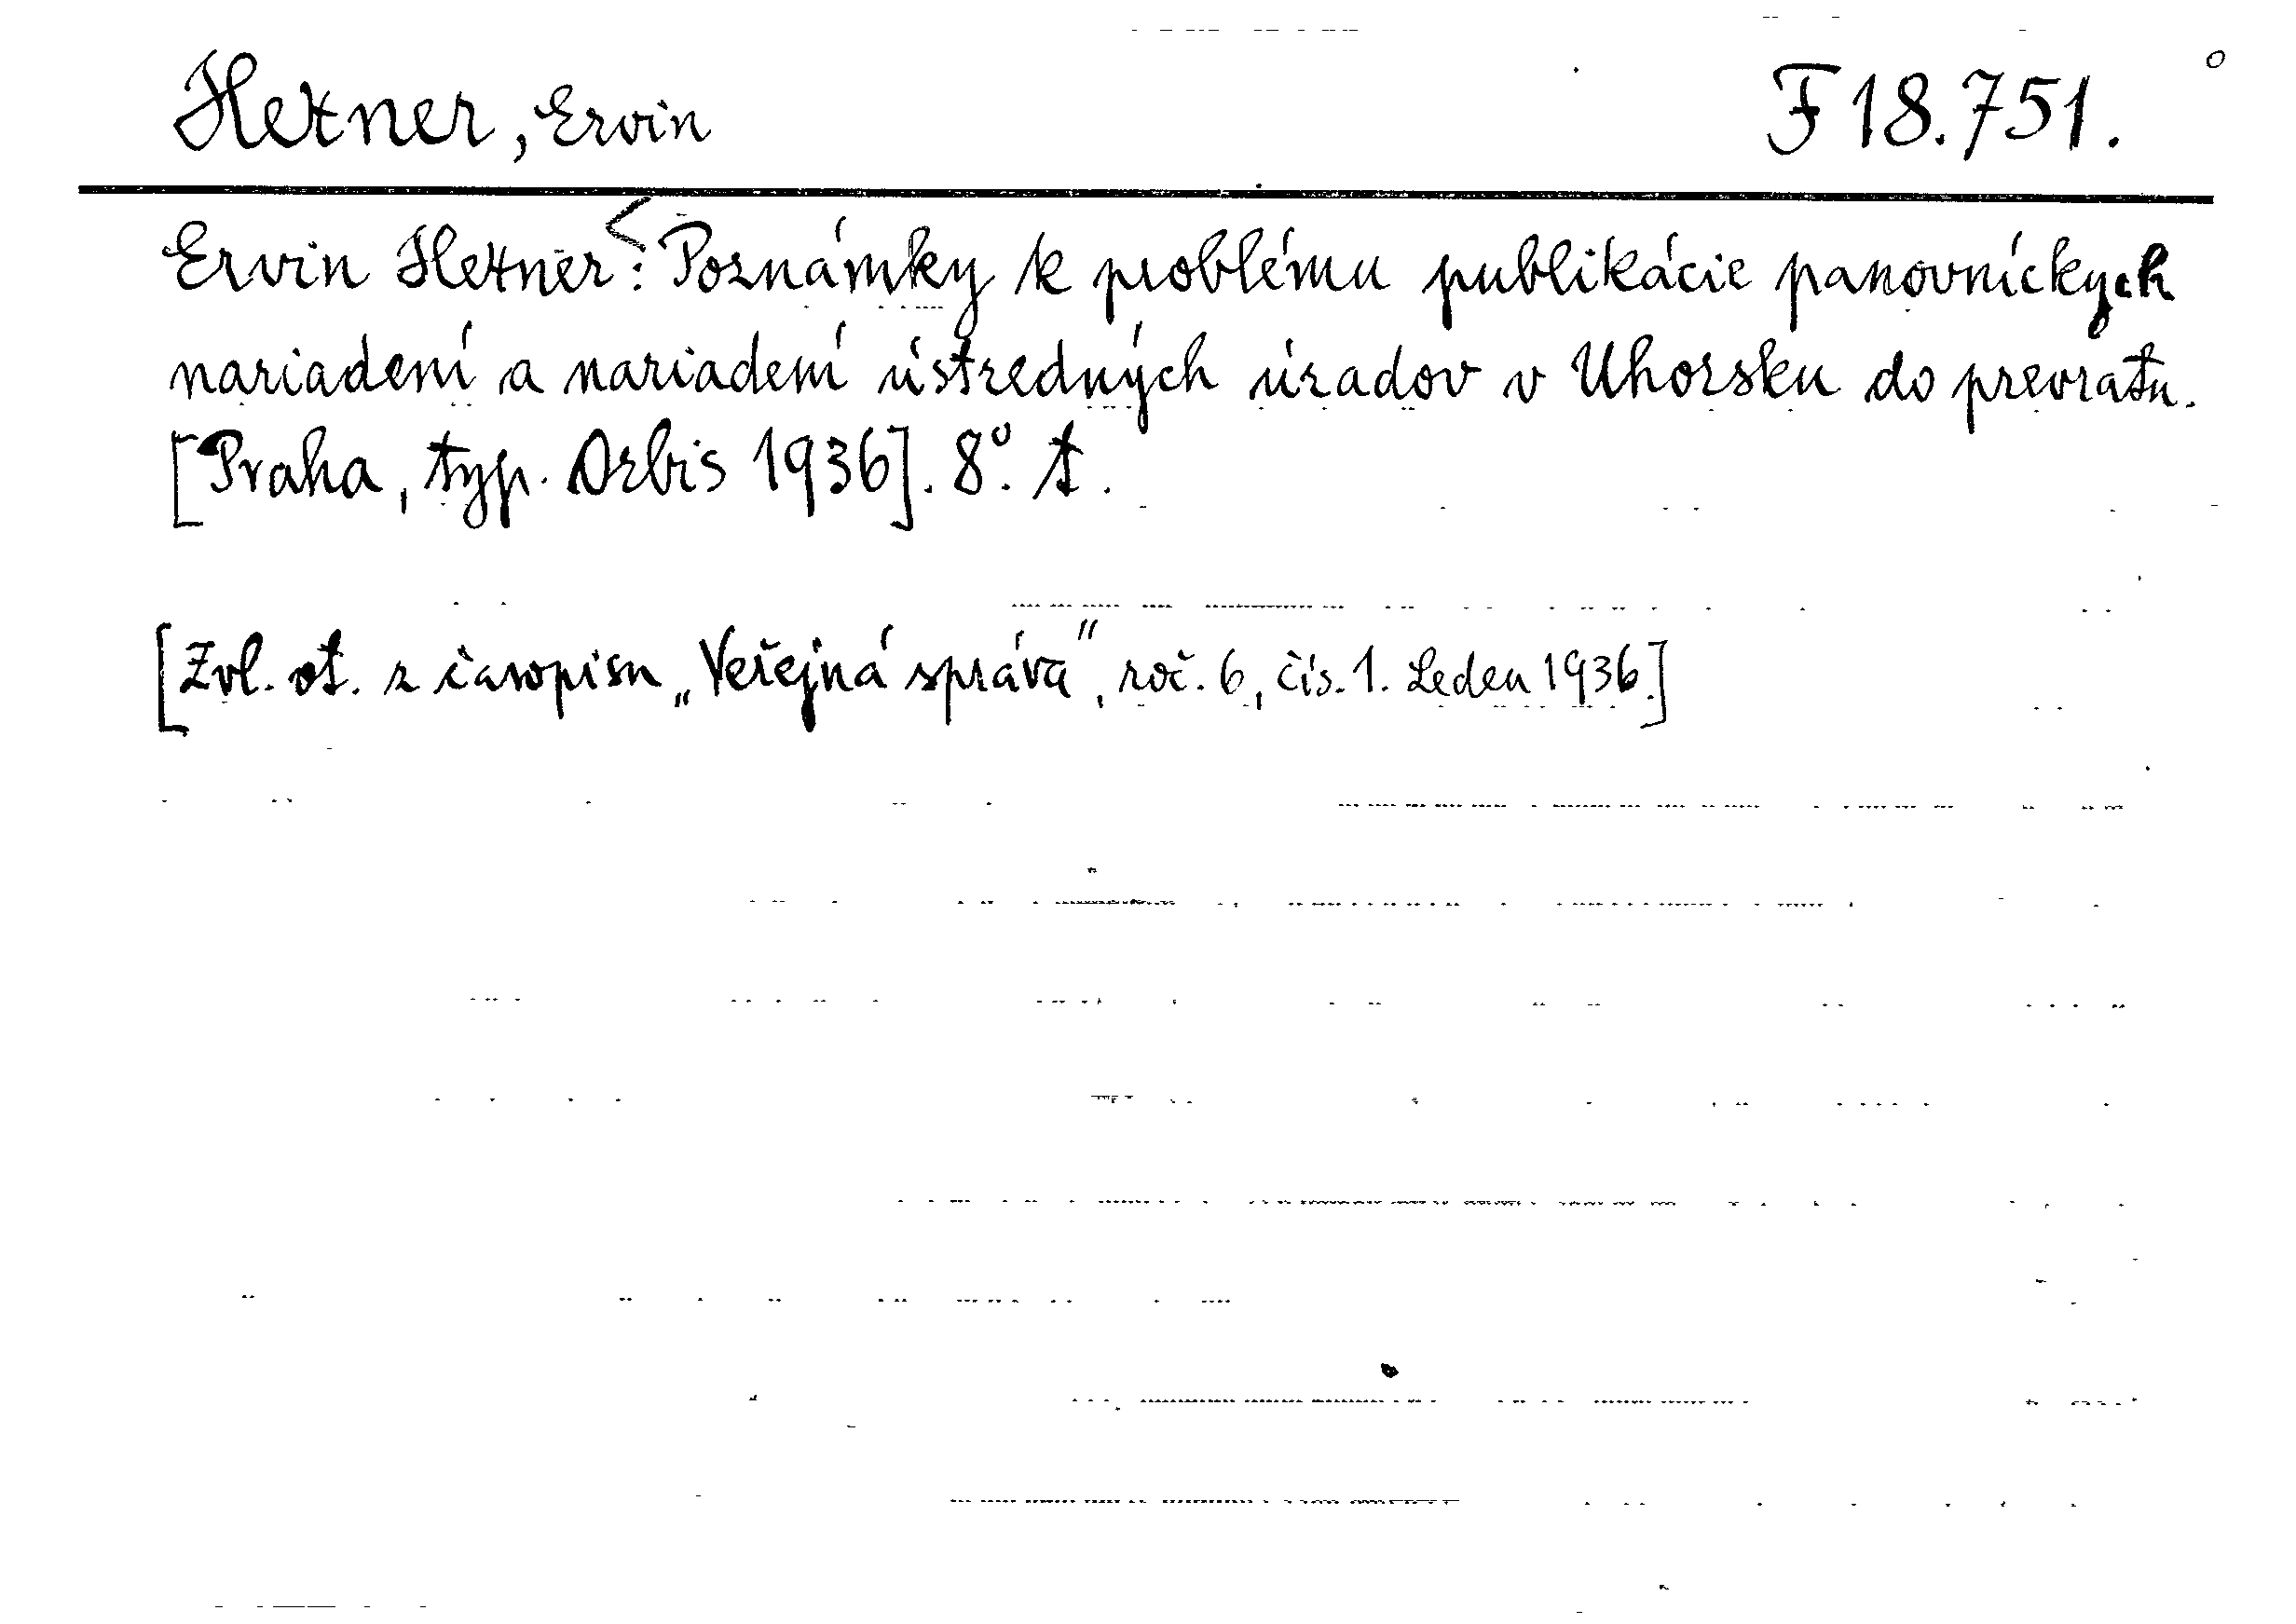 Hexner, Ervin F 18.751.
Ervin Hexner: Poznámky k problému publikácie panovníckych
nariadení a nariadení ústredných úradov v Uhorsku do prevratu.
[Praha, typ. Orbis 1936]. 8º. t.
[Zvl. ot. z časopisu „Veřejná správa", roč. 6, čís. 1. Leden 1936.]